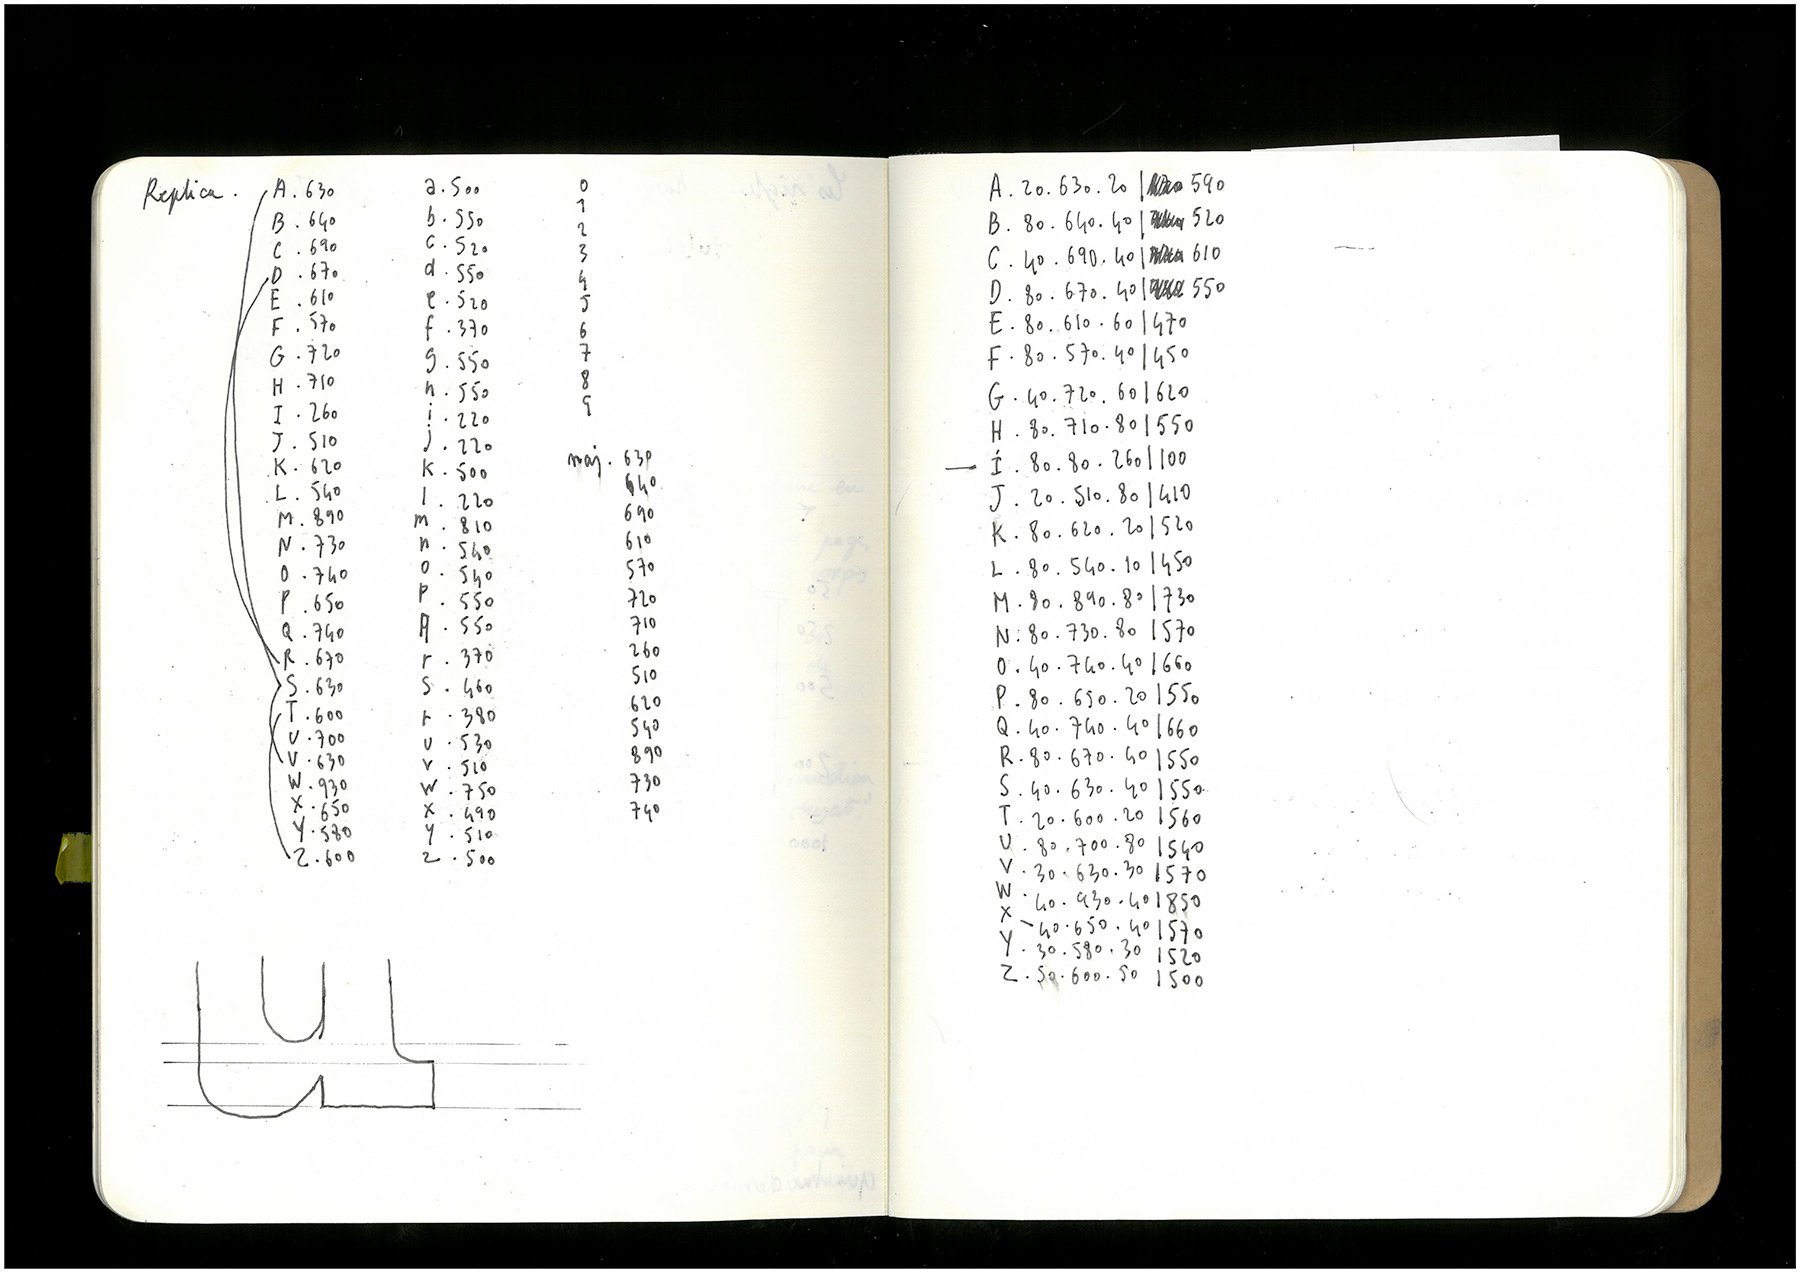 Replica.
A. 630
B. 640
C. 690
D. 670
E. 610
F. 570
G. 720
H. 710
I. 260
J. 510
K. 620
L. 540
M. 890
N. 730
O. 740
P. 650
Q. 740
R. 670
S. 630
T. 600
U. 700
V. 630
W. 930
X. 650
Y. 580
Z. 600
a. 500
b. 550
c. 520
d. 550
e. 520
f. 370
g. 550
h. 550
i. 220
j. 220
k. 500
l. 220
m. 810
n. 540
o. 540
p. 550
550
r. 370
s. 460
380
u. 530
v. 510
w. 750
x. 490
y. 510
z. 500
0
1
2
3
4
5
6
7
8
9
maj. 630
640
690
610
570
720
710
260
510
620
540
890
730
740
A. 20. 630. 20 | 590
B. 80. 640. 40 | 520
C. 40. 690. 40 | 610
D. 80. 670. 40 | 550
E. 80. 610. 60 | 470
F. 80. 570. 40 | 450
G. 40. 720. 60 | 620
H. 80. 710. 80 | 550
I. 80. 80. 260 | 100
J. 20. 510. 80 | 410
K. 80. 620. 20 | 520
L. 80. 540. 10 | 450
M. 80. 890. 80 | 730
N. 80. 730. 80 | 570
O. 40. 740. 40 | 660
P. 80. 650. 20 | 550
Q. 40. 740. 40 | 660
R. 80. 670. 40 | 550
S. 40. 630. 40 | 550
T. 20. 600. 20 | 560
U. 80. 700. 80 | 540
V. 30. 630. 30 | 570
W. 40. 930. 40 | 850
X. 40. 650. 40 | 570
Y. 30. 580. 30 | 520
Z. 50. 600. 50 | 500